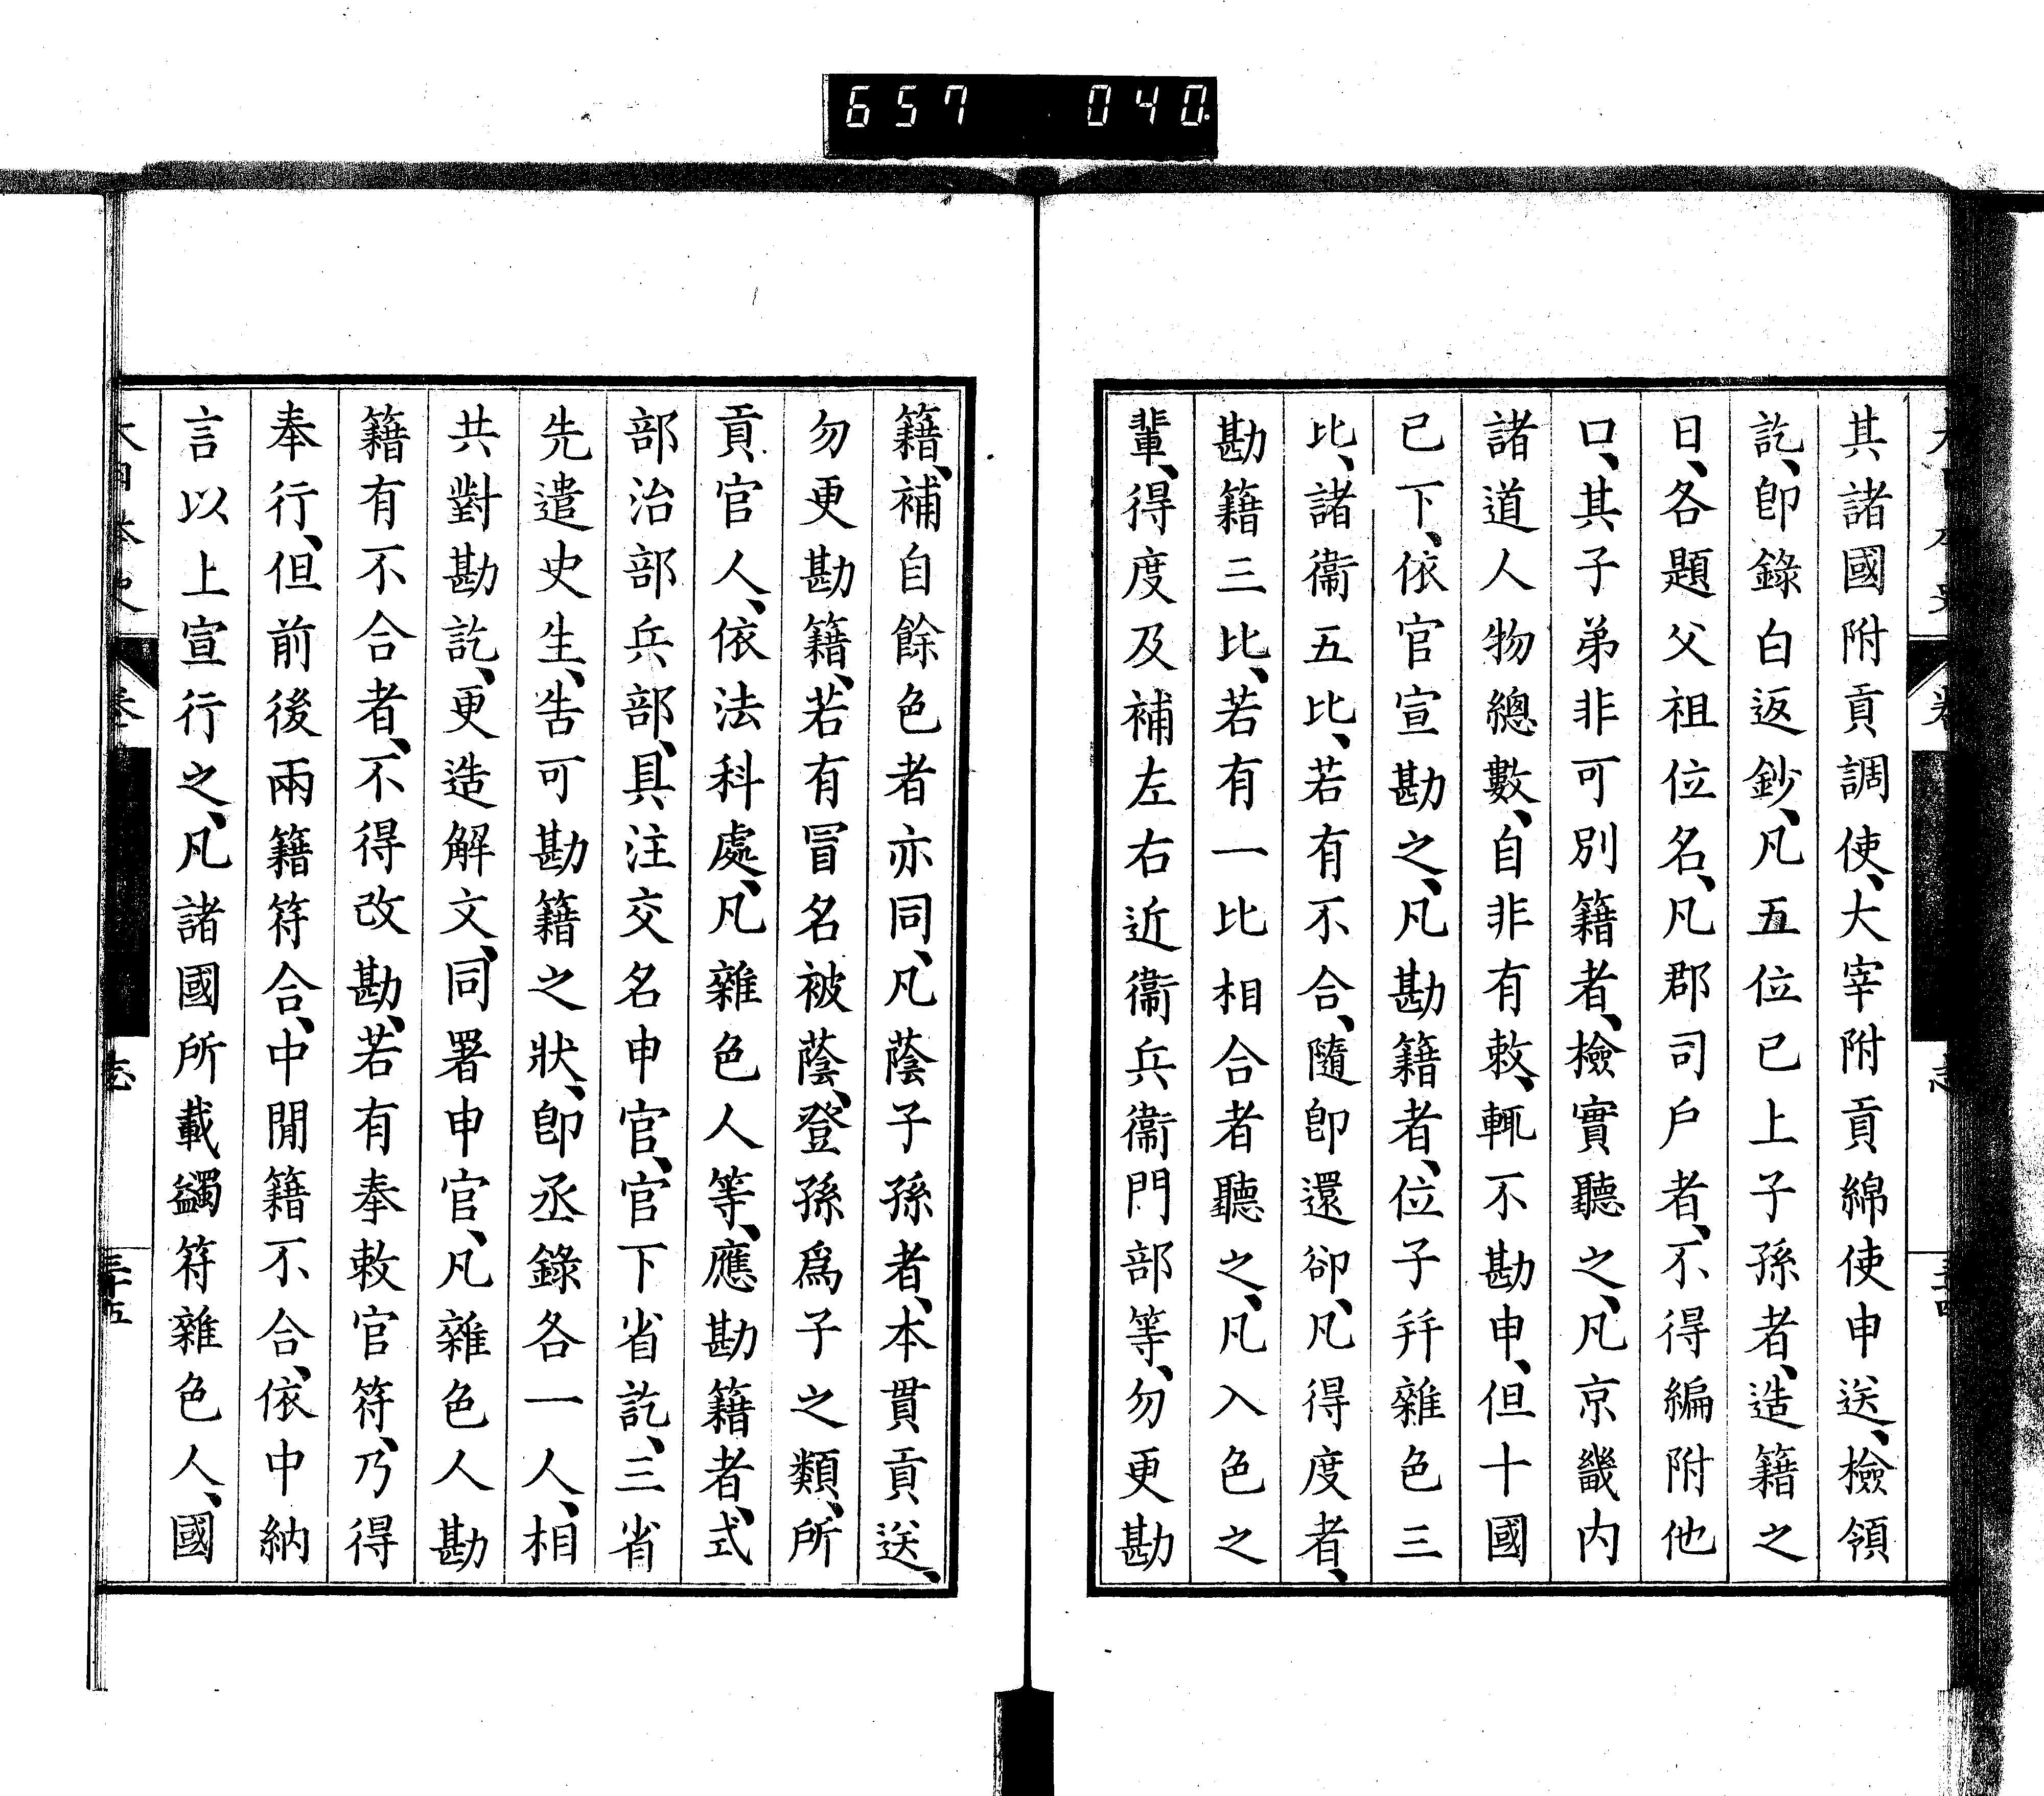 657 040.
其諸國附貢調使、大宰附貢綿使申送、檢領
訖、卽錄白返鈔、凡五位已上子孫者、造籍之
日、各題父祖位名、凡郡司戶者、不得編附他
口、其子弟非可別籍者、檢實聽之、凡京畿內
諸道人物總數、自非有敕、輒不勘申、但十國
已下、依官宣勘之、凡勘籍者、位子幷雜色三
比、諸衞五比、若有不合、隨卽還卻、凡得度者、
勘籍三比、若有一比相合者聽之、凡入色之
輩、得度及補左右近衞兵衞門部等、勿更勘
籍、補自餘色者亦同、凡蔭子孫者、本貫貢送、
勿更勘籍、若有冒名被蔭、登孫爲子之類、所
貢官人、依法科處、凡雜色人等、應勘籍者、式
部治部兵部、具注交名申官、官下省訖、三省
先遣史生、告可勘籍之狀、卽丞錄各一人、相
共對勘訖、更造解文、同署申官、凡雜色人勘
籍有不合者、不得改勘、若有奉敕官符、乃得
奉行、但前後兩籍符合、中閒籍不合、依中納
言以上宣行之、凡諸國所載蠲符雜色人、國
大日本史 卷 志 三十五